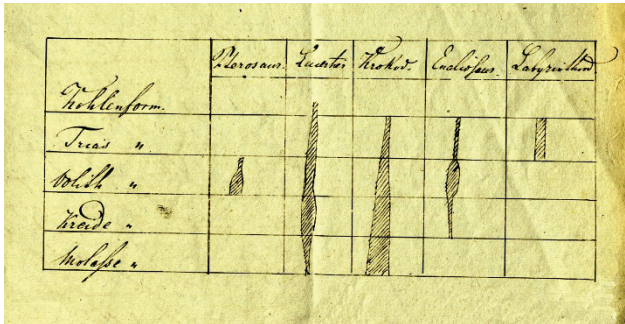 Pterosaur. Lacertier Krokod. Enaliosaur. Labyrinthod
Kohlenform.
Trias "
Oolith "
Kreide "
Molasse "